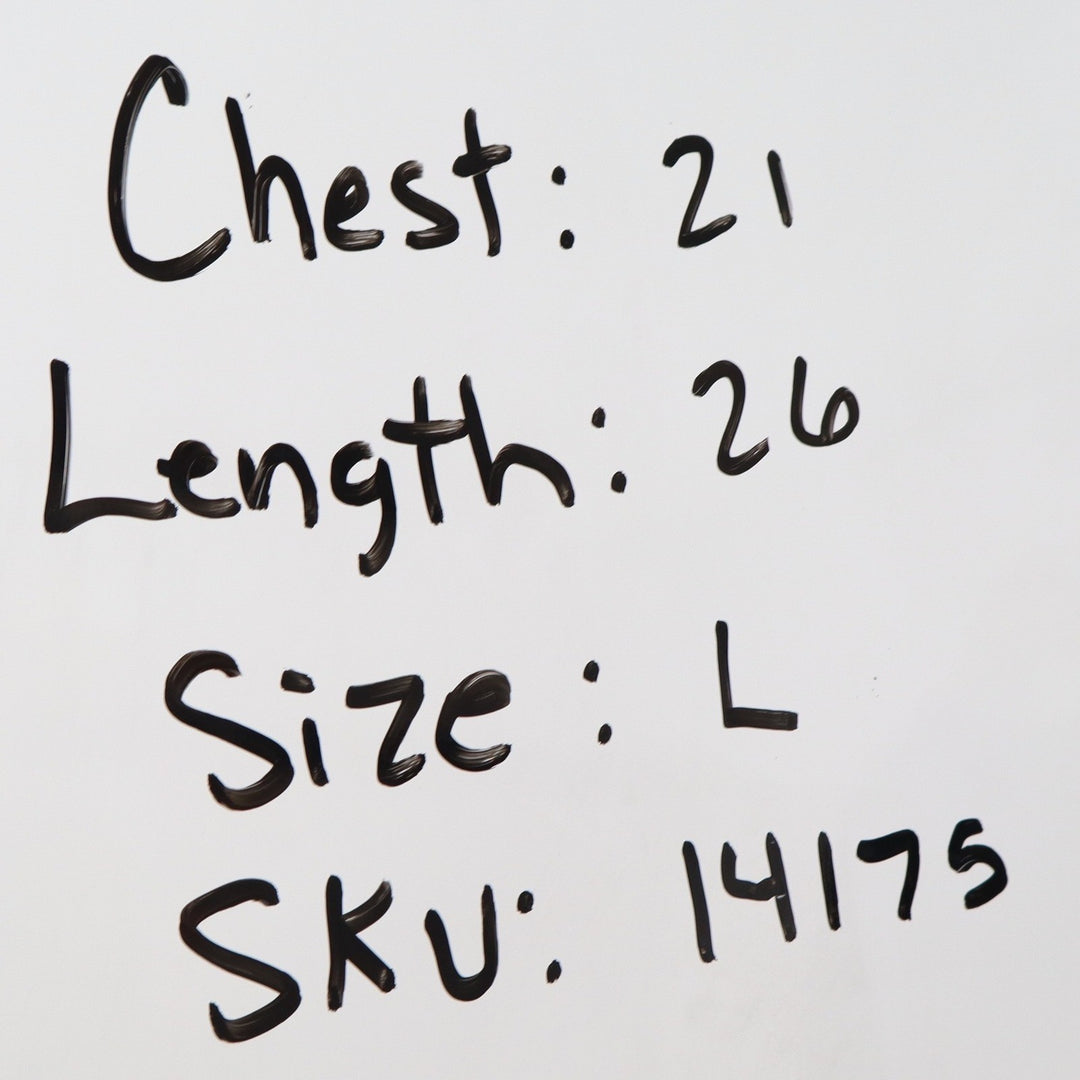 Chest: 21
Length: 26
Size: L
SKU: 14175